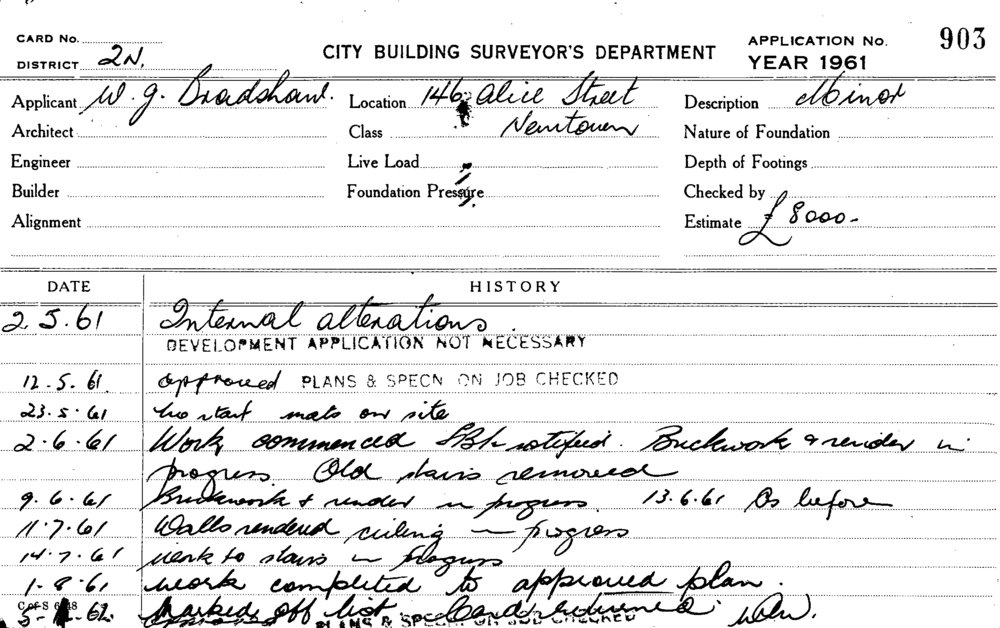 CARD No.
DISTRICT 2N.
CITY BUILDING SURVEYOR'S DEPARTMENT
APPLICATION No. 903
YEAR 1961
Applicant W. J. Bradshaw. Location 146 Alice Street Description Minor
Architect Class Newtown Nature of Foundation
Engineer Live Load Depth of Footings
Builder Foundation Pressure Checked by
Alignment Estimate £8000-
DATE HISTORY
2.5.61 Internal alterations.
DEVELOPMENT APPLICATION NOT NECESSARY
12.5.61 approved PLANS & SPECN ON JOB CHECKED
23.5.61 No start mats on site
2.6.61 Work commenced notified. Brickwork & render in
progress. Old stairs removed
9.6.61 Brickwork & render in progress. 13.6.61 As before
11.7.61 Walls rendered ceiling in progress
14.7.61 work to stairs in progress
1.8.61 work completed to approved plan.
62. Marked off list Card returned
PLANS & SPECN ON JOB CHECKED